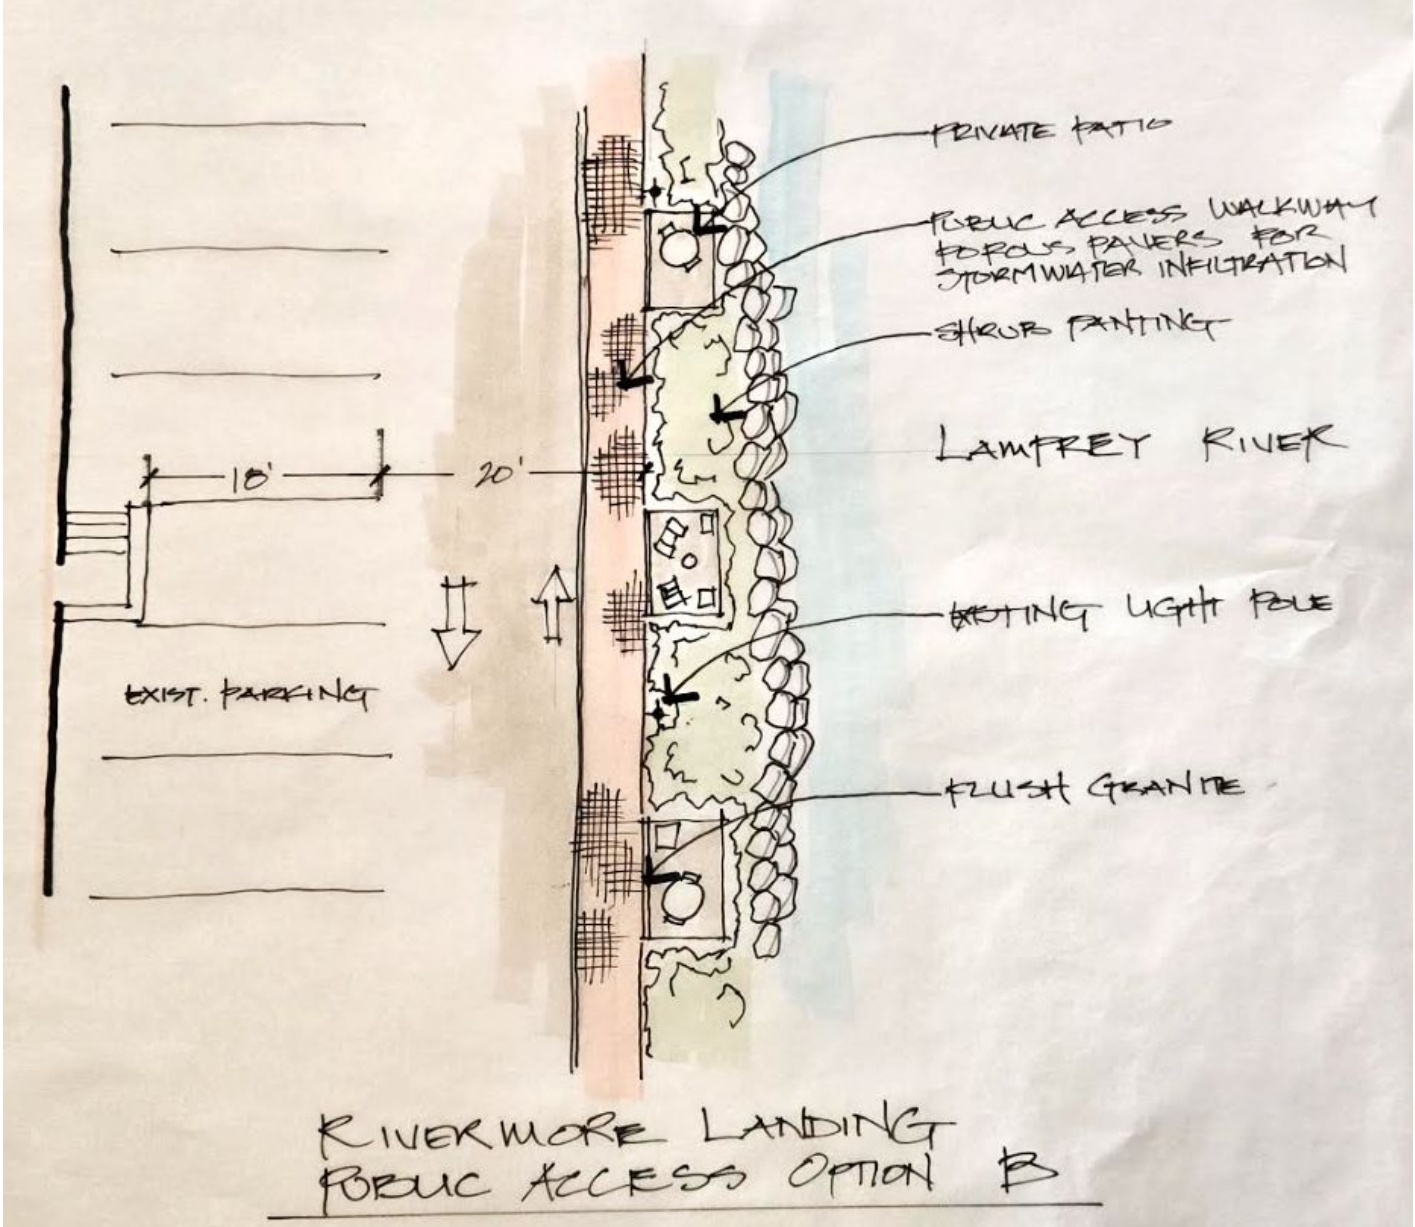 PRIVATE PATIO
PUBLIC ACCESS WALKWAY
POROUS PAVERS FOR
STORMWATER INFILTRATION
SHRUB PANTING
LAMPREY RIVER
18'
20'
EXISTING LIGHT POLE
EXIST. PARKING
FLUSH GRANITE
RIVERMORE LANDING
PUBLIC ACCESS OPTION B